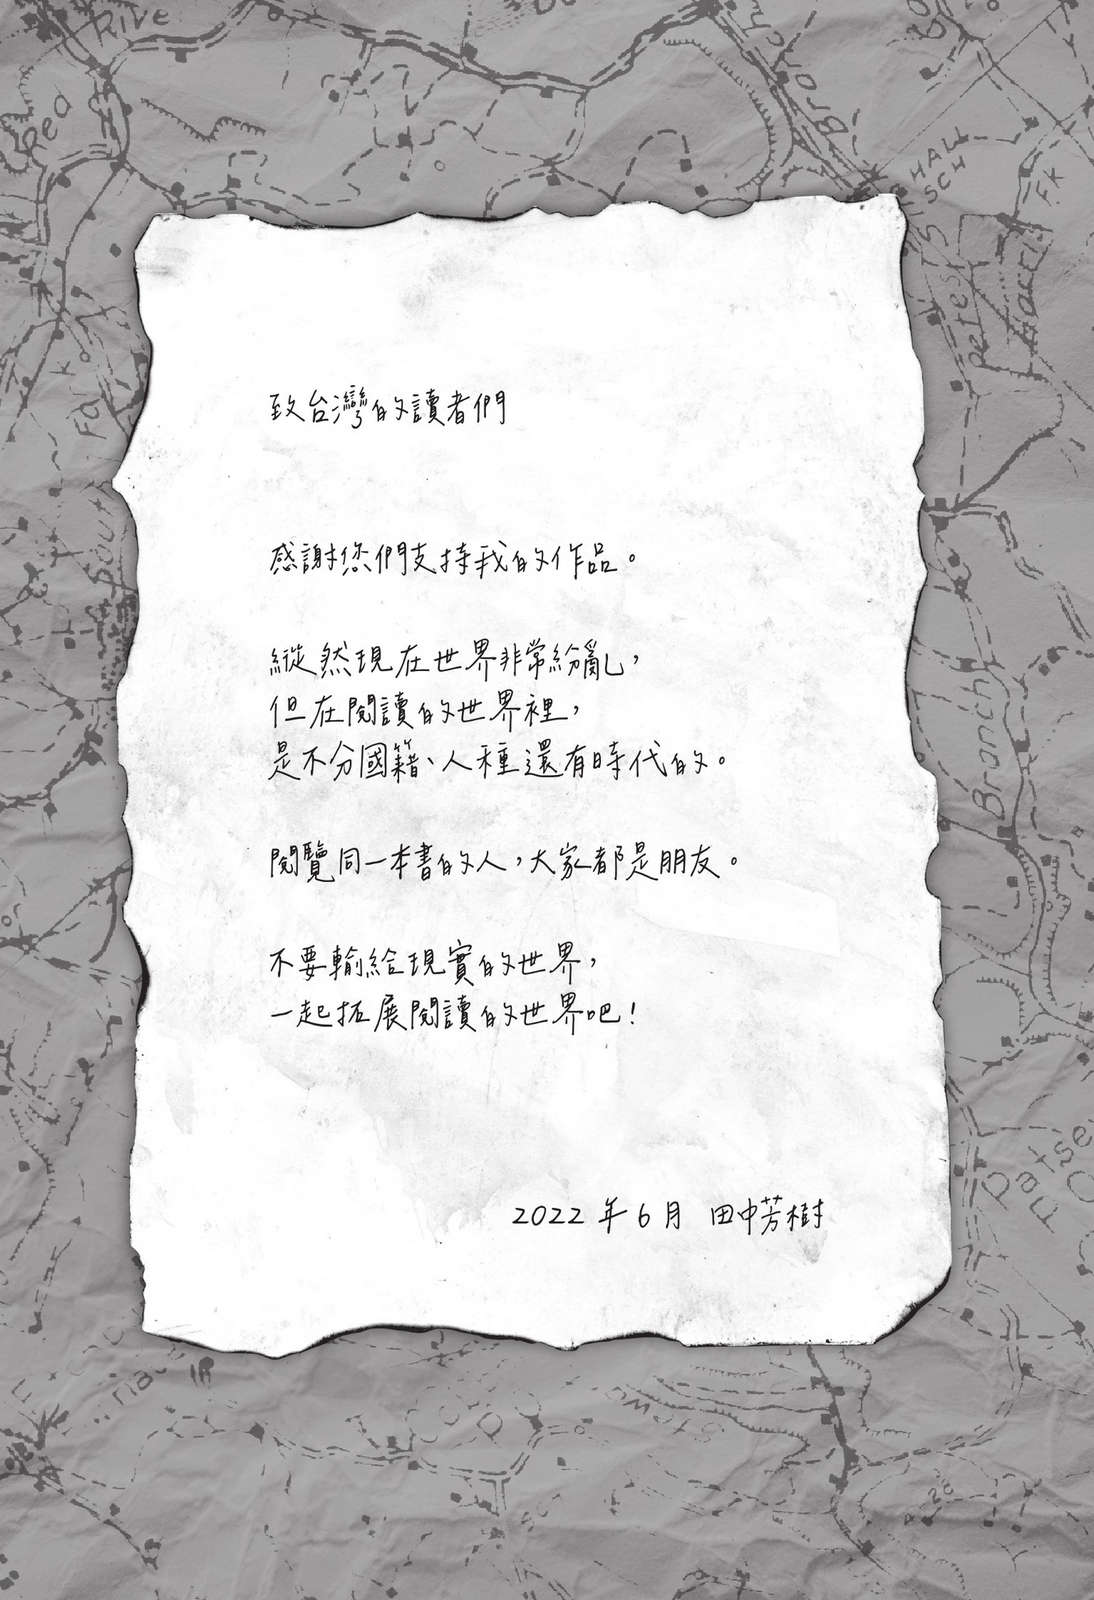 Rive
Branch
Red
HALL
SCH
FK
Harris
Fal
South
致台灣的讀者們
感謝您們支持我的作品。
縱然現在世界非常紛亂，
但在閱讀的世界裡，
是不分國籍、人種還有時代的。
閱覽同一本書的人，大家都是朋友。
不要輸給現實的世界，
一起拓展閱讀的世界吧！
2022年6月 田中芳樹
Branch